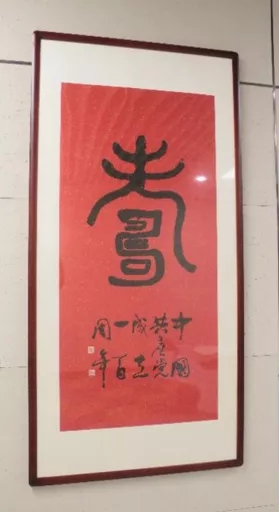 壽
中國
共產党
成立
一百
周年